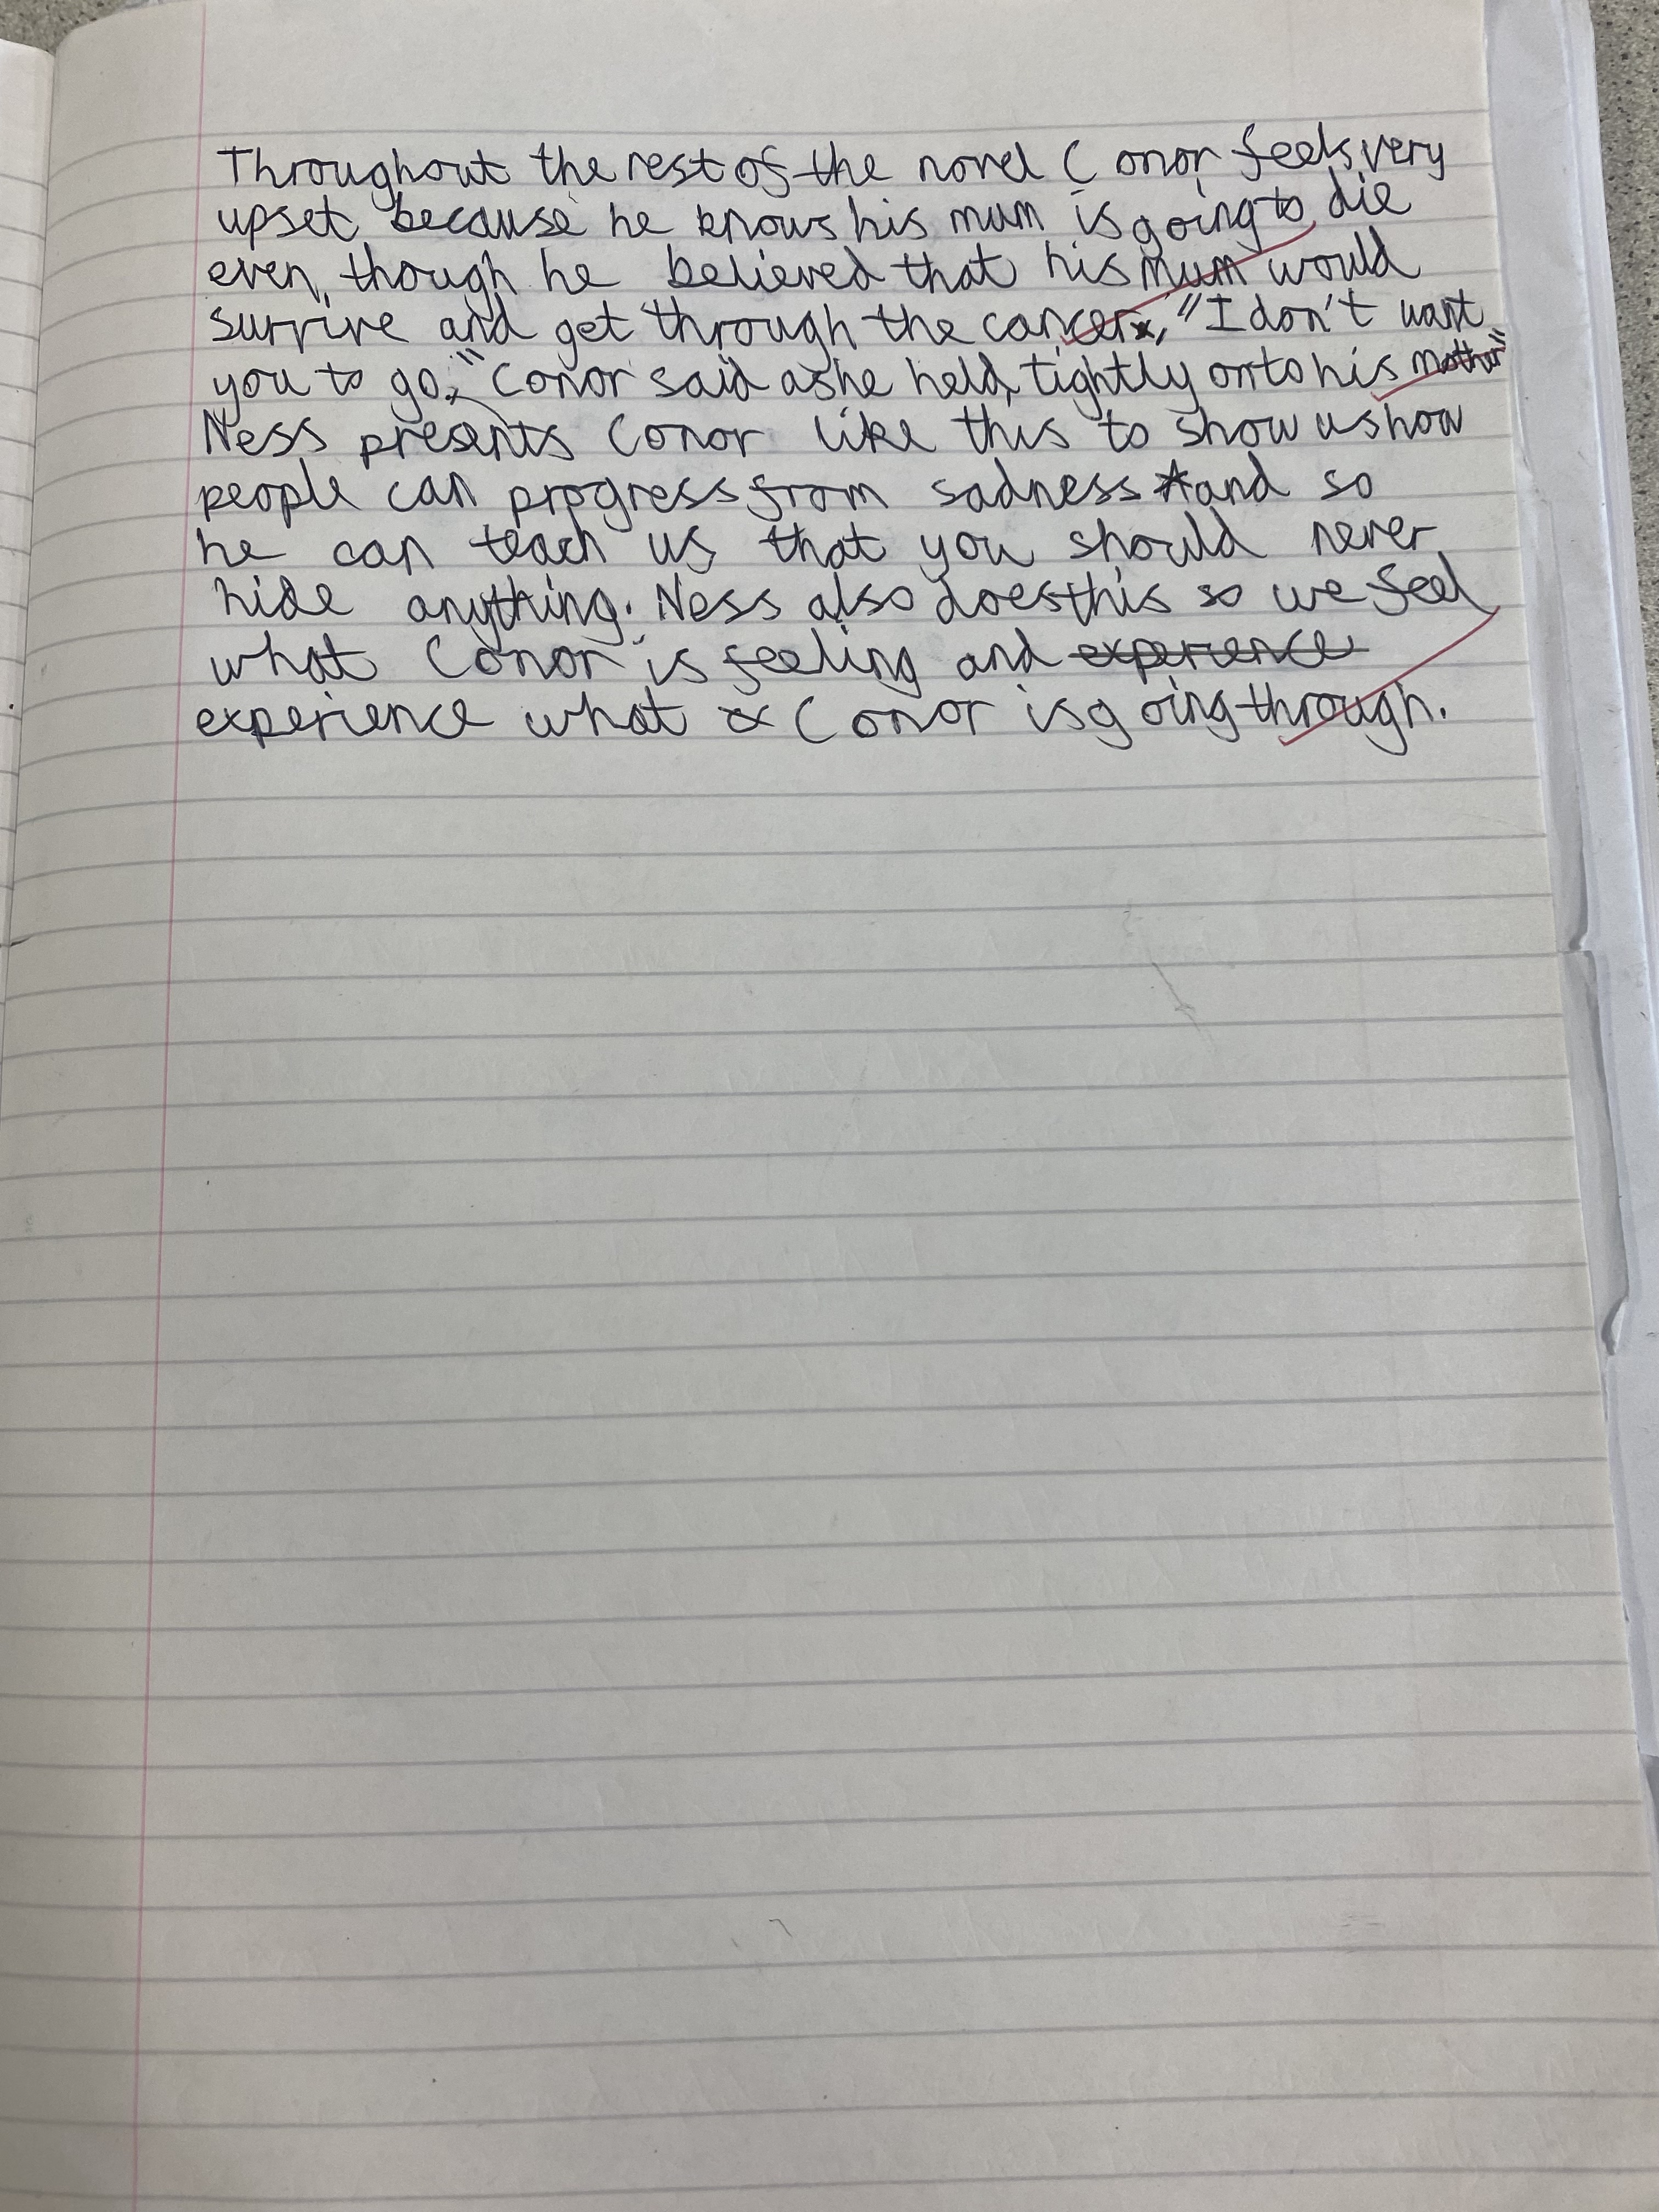 Throughout the rest of the novel Conor feels very
upset because he knows his mum is going to die
even, though he believed that his mum would
survive and get through the cancer, "I don't want
you to go," Conor said as he held tightly onto his mother"
Ness presents Conor like this to show us how
people can progress from sadness and so
he can teach us that you should never
hide anything. Ness also does this so we feel
what Conor is feeling and experience
experience what Conor is going through.